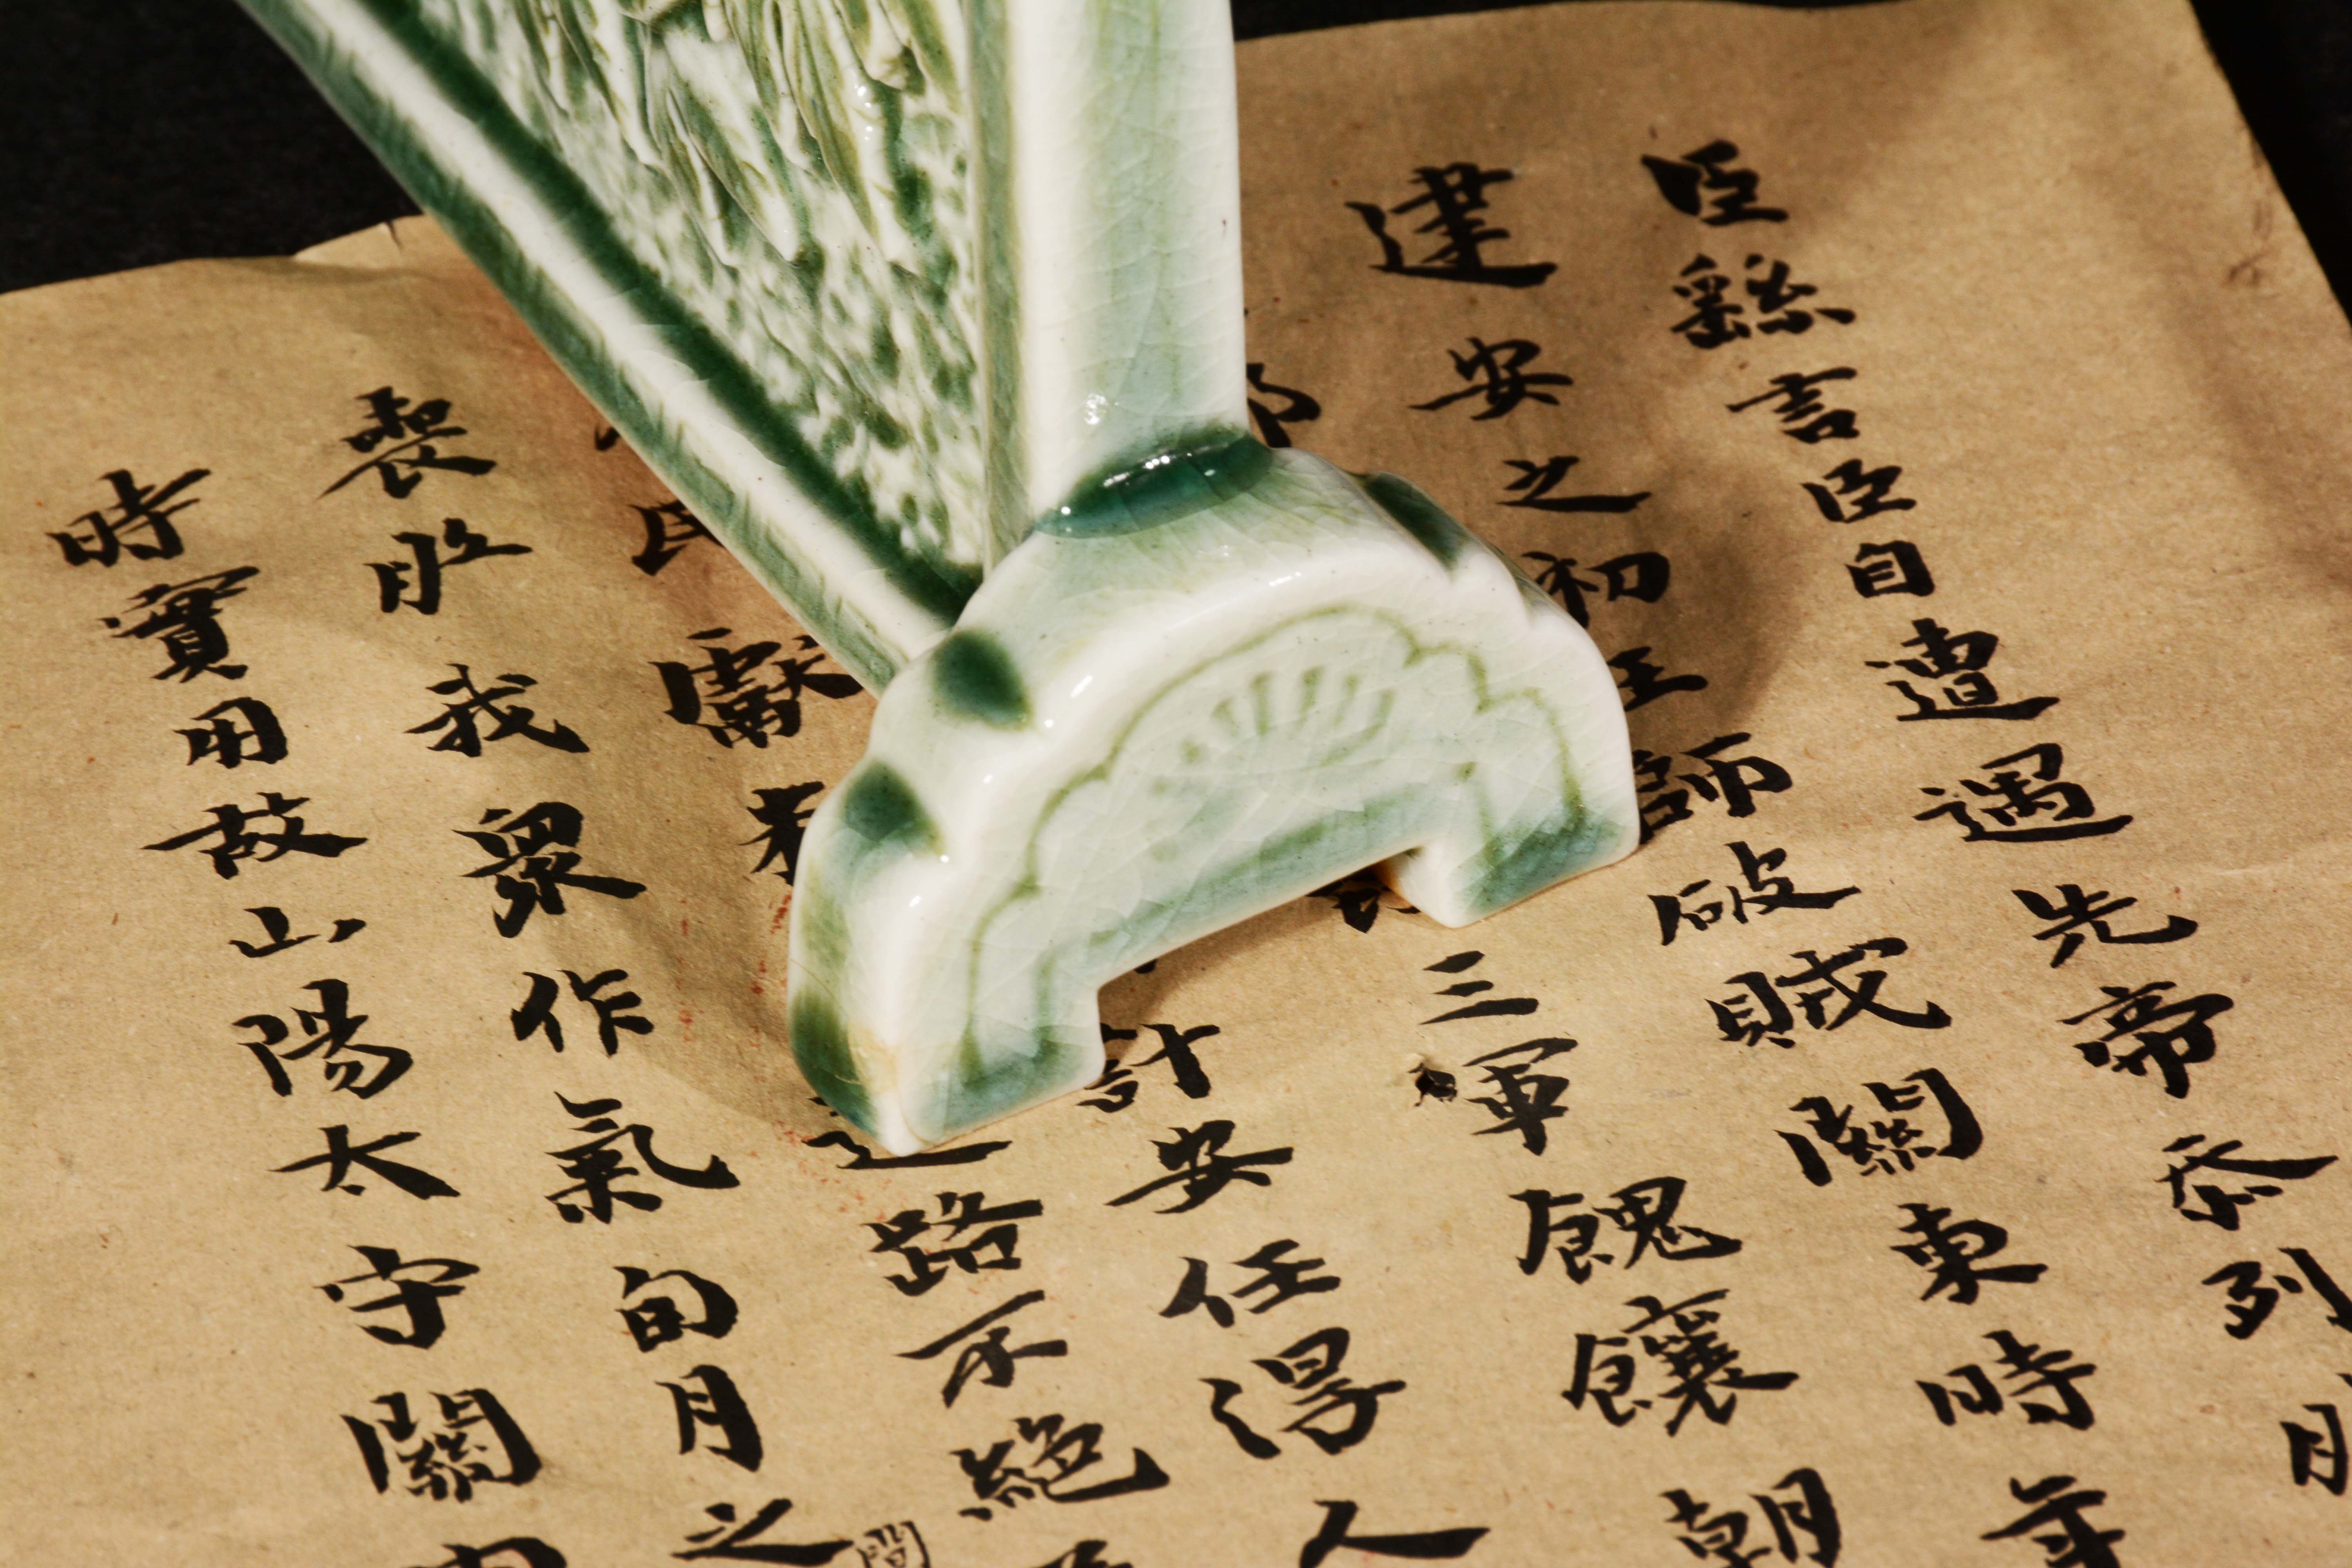 臣繇言臣自遭遇先帝忝列
建安之初王師破賊關東時年
三軍餽饟朝
計安任得人
民獻
路不絕
喪眀我眾作氣旬月之
時實用故山陽太守關
間